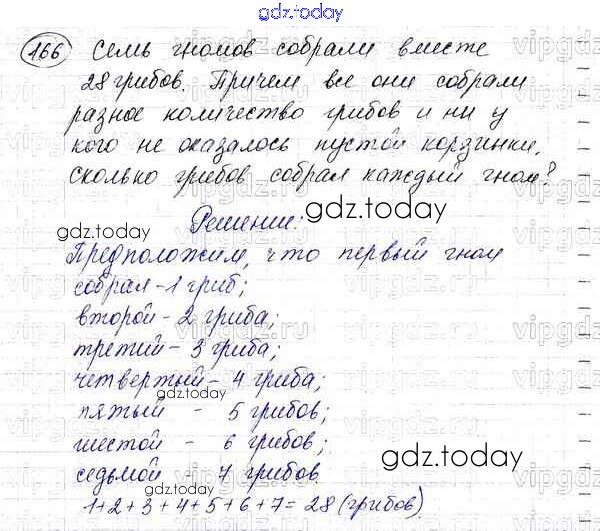 gdz.today
166 Семь гномов собрали вместе
28 грибов. Причем все они собрали
разное количество грибов и ни у
кого не оказалось пустой корзинки.
Сколько грибов собрал каждый гном?
gdz.today
Решение:
gdz.today
Предположим, что первый гном
собрал - 1 гриб;
второй - 2 гриба;
третий - 3 гриба;
четвертый - 4 гриба;
gdz.today
пятый - 5 грибов;
шестой - 6 грибов;
gdz.today
седьмой - 7 грибов
1+2+3+4+5+6+7=28 (грибов)
gdz.today